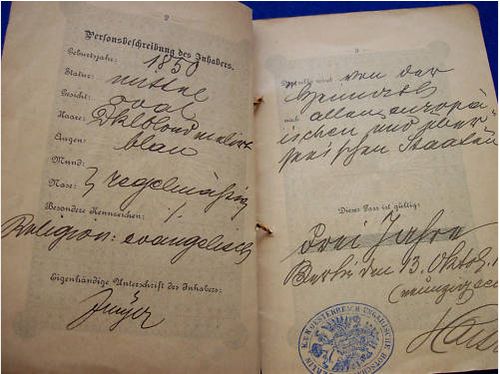 2
Personsbeschreibung des Inhabers.
Geburtsjahr: 1850
Statur: mittel
Gesicht: oval
Haare: Dklblond meliert
Augen: blau
Mund:
Nase: } regelmässig
Besondere Kennzeichen: ·/.
Religion: evangelisch
Eigenhändige Unterschrift des Inhabers:
3
von der
Heimreise
nach allen europä-
ischen und über-
seeischen Staaten
Dieser Pass ist gültig:
Drei Jahre
Berlin den 13. Oktob.
K.u.K. OESTERREICH-UNGARISCHE BOTSCHAFT
BERLIN